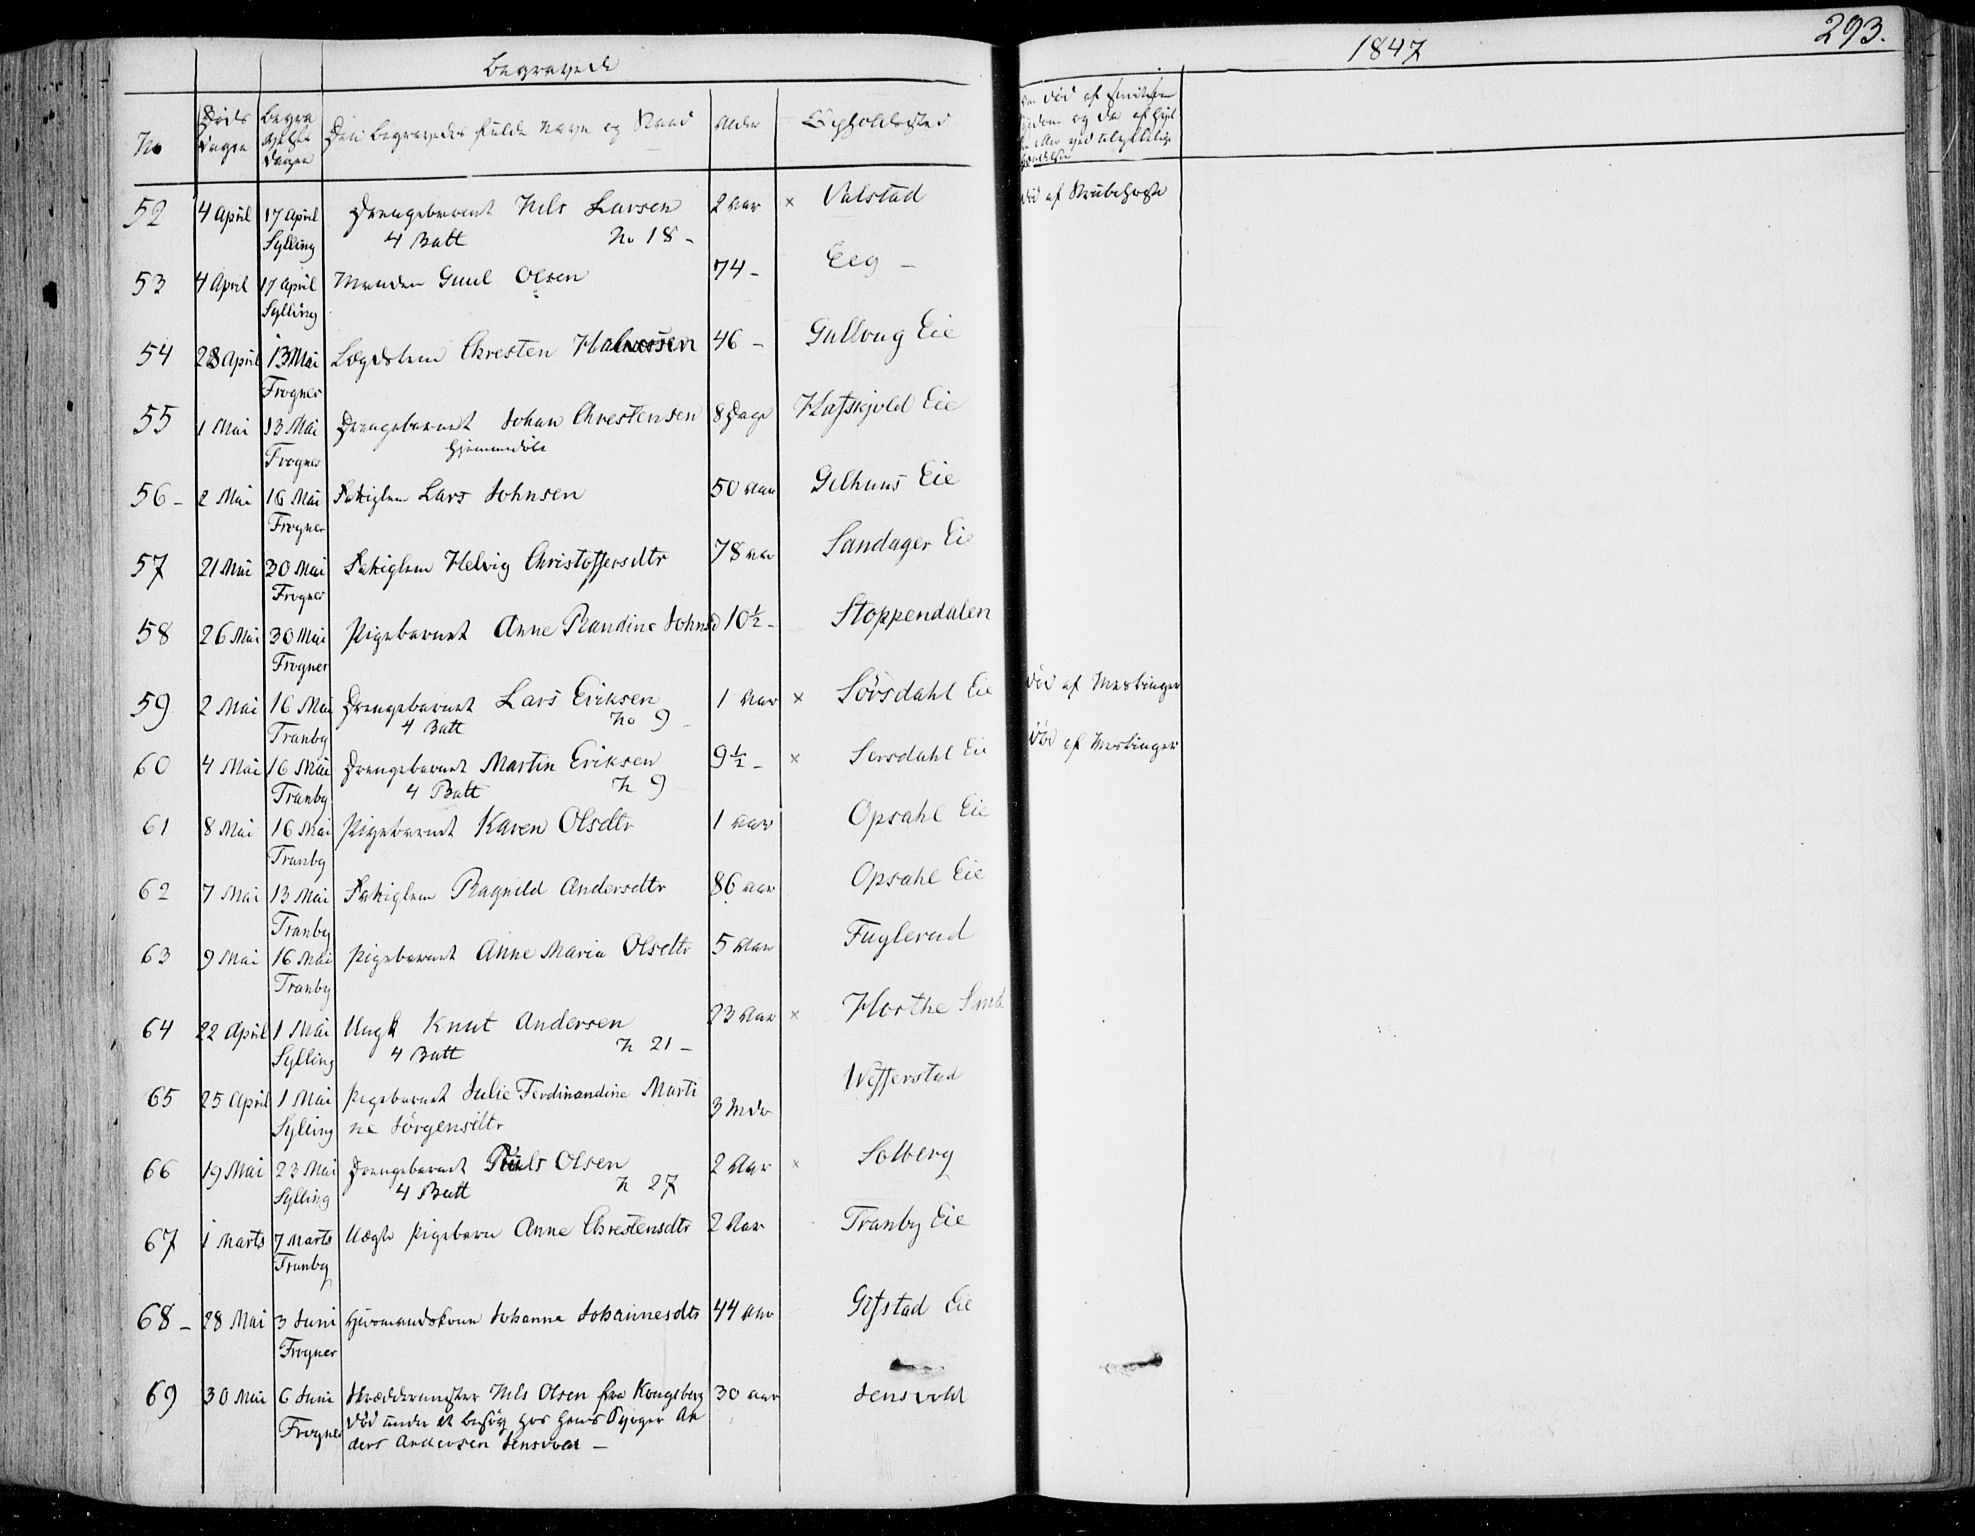 Begravede
1847
293.
No
Døds Dagen
Begravelses Dagen
Den Begravedes fulde Navn og Stand
Alder
Opholdssted
52 4 April 17 April Drengebarnet Nils Larsen 2 Aar × Valstad død af Strubehoste
Sylling 4 Batt No 18 -
53 4 April 17 April Manden Guul Olsen 74 - Eeg -
Sylling
54 28 April 13 Mai Lægdslem Christen Halvorsen 46 - Gullaug Eie
Frogner
55 1 Mai 13 Mai Drengebarnet Johan Christensen 8 Dage Hafskjold Eie
Frogner Hjemmedøbt
56 - 2 Mai 16 Mai Fattiglem Lars Johnsen 50 Aar Gilhuus Eie
Frogner
57 21 Mai 30 Mai Fattiglem Helvig Christoffersdtr 78 Aar Sandager Eie
Frogner
58 26 Mai 30 Mai Pigebarnet Anne Randine Johnsd 10½ - Stoppendalen
Frogner
59 2 Mai 16 Mai Drengebarnet Lars Eriksen 1 Aar × Sørsdahl Eie død af Meslinger
Tranby 4 Batt No 9 -
60 4 Mai 16 Mai Drengebarnet Martin Eriksen 9½ - × Sørsdahl Eie død af Meslinger
Tranby 4 Batt N 9
61 8 Mai 16 Mai Pigebarnet Karen Olsdtr 1 Aar Opsahl Eie
Tranby
62 7 Mai 13 Mai Fattiglem Ragnild Andersdtr 86 Aar Opsahl Eie
Tranby
63 9 Mai 16 Mai Pigebarnet Anne Maria Olsdtr 5 Aar Fuglerud
Tranby
64 22 April 1 Mai Ungk Knut Andersen 23 Aar × Horthe
Sylling 4 Batt N 21 -
65 25 April 1 Mai Pigebarnet Julie Ferdinandine Marti 3 Mdr Wefferstad
Sylling ne Jørgensdtr
66 19 Mai 23 Mai Drengebarnet Niels Olsen 2 Aar × Solberg
Sylling 4 Batt N 27
67 1 Marts 7 Marts Uægte Pigebarn Anne Christensdtr 2 Aar Tranby Eie
Tranby
68 - 28 Mai 3 Juni Huusmandskone Johanne Johannesdtr 44 Aar Gifstad Eie
Frogner
69 30 Mai 6 Juni Skræddermester Nils Olsen fra Kongsberg 30 Aar Jensvold
Frogner død under et besøg hos hans Svoger An
ders Andersen Jensvold -